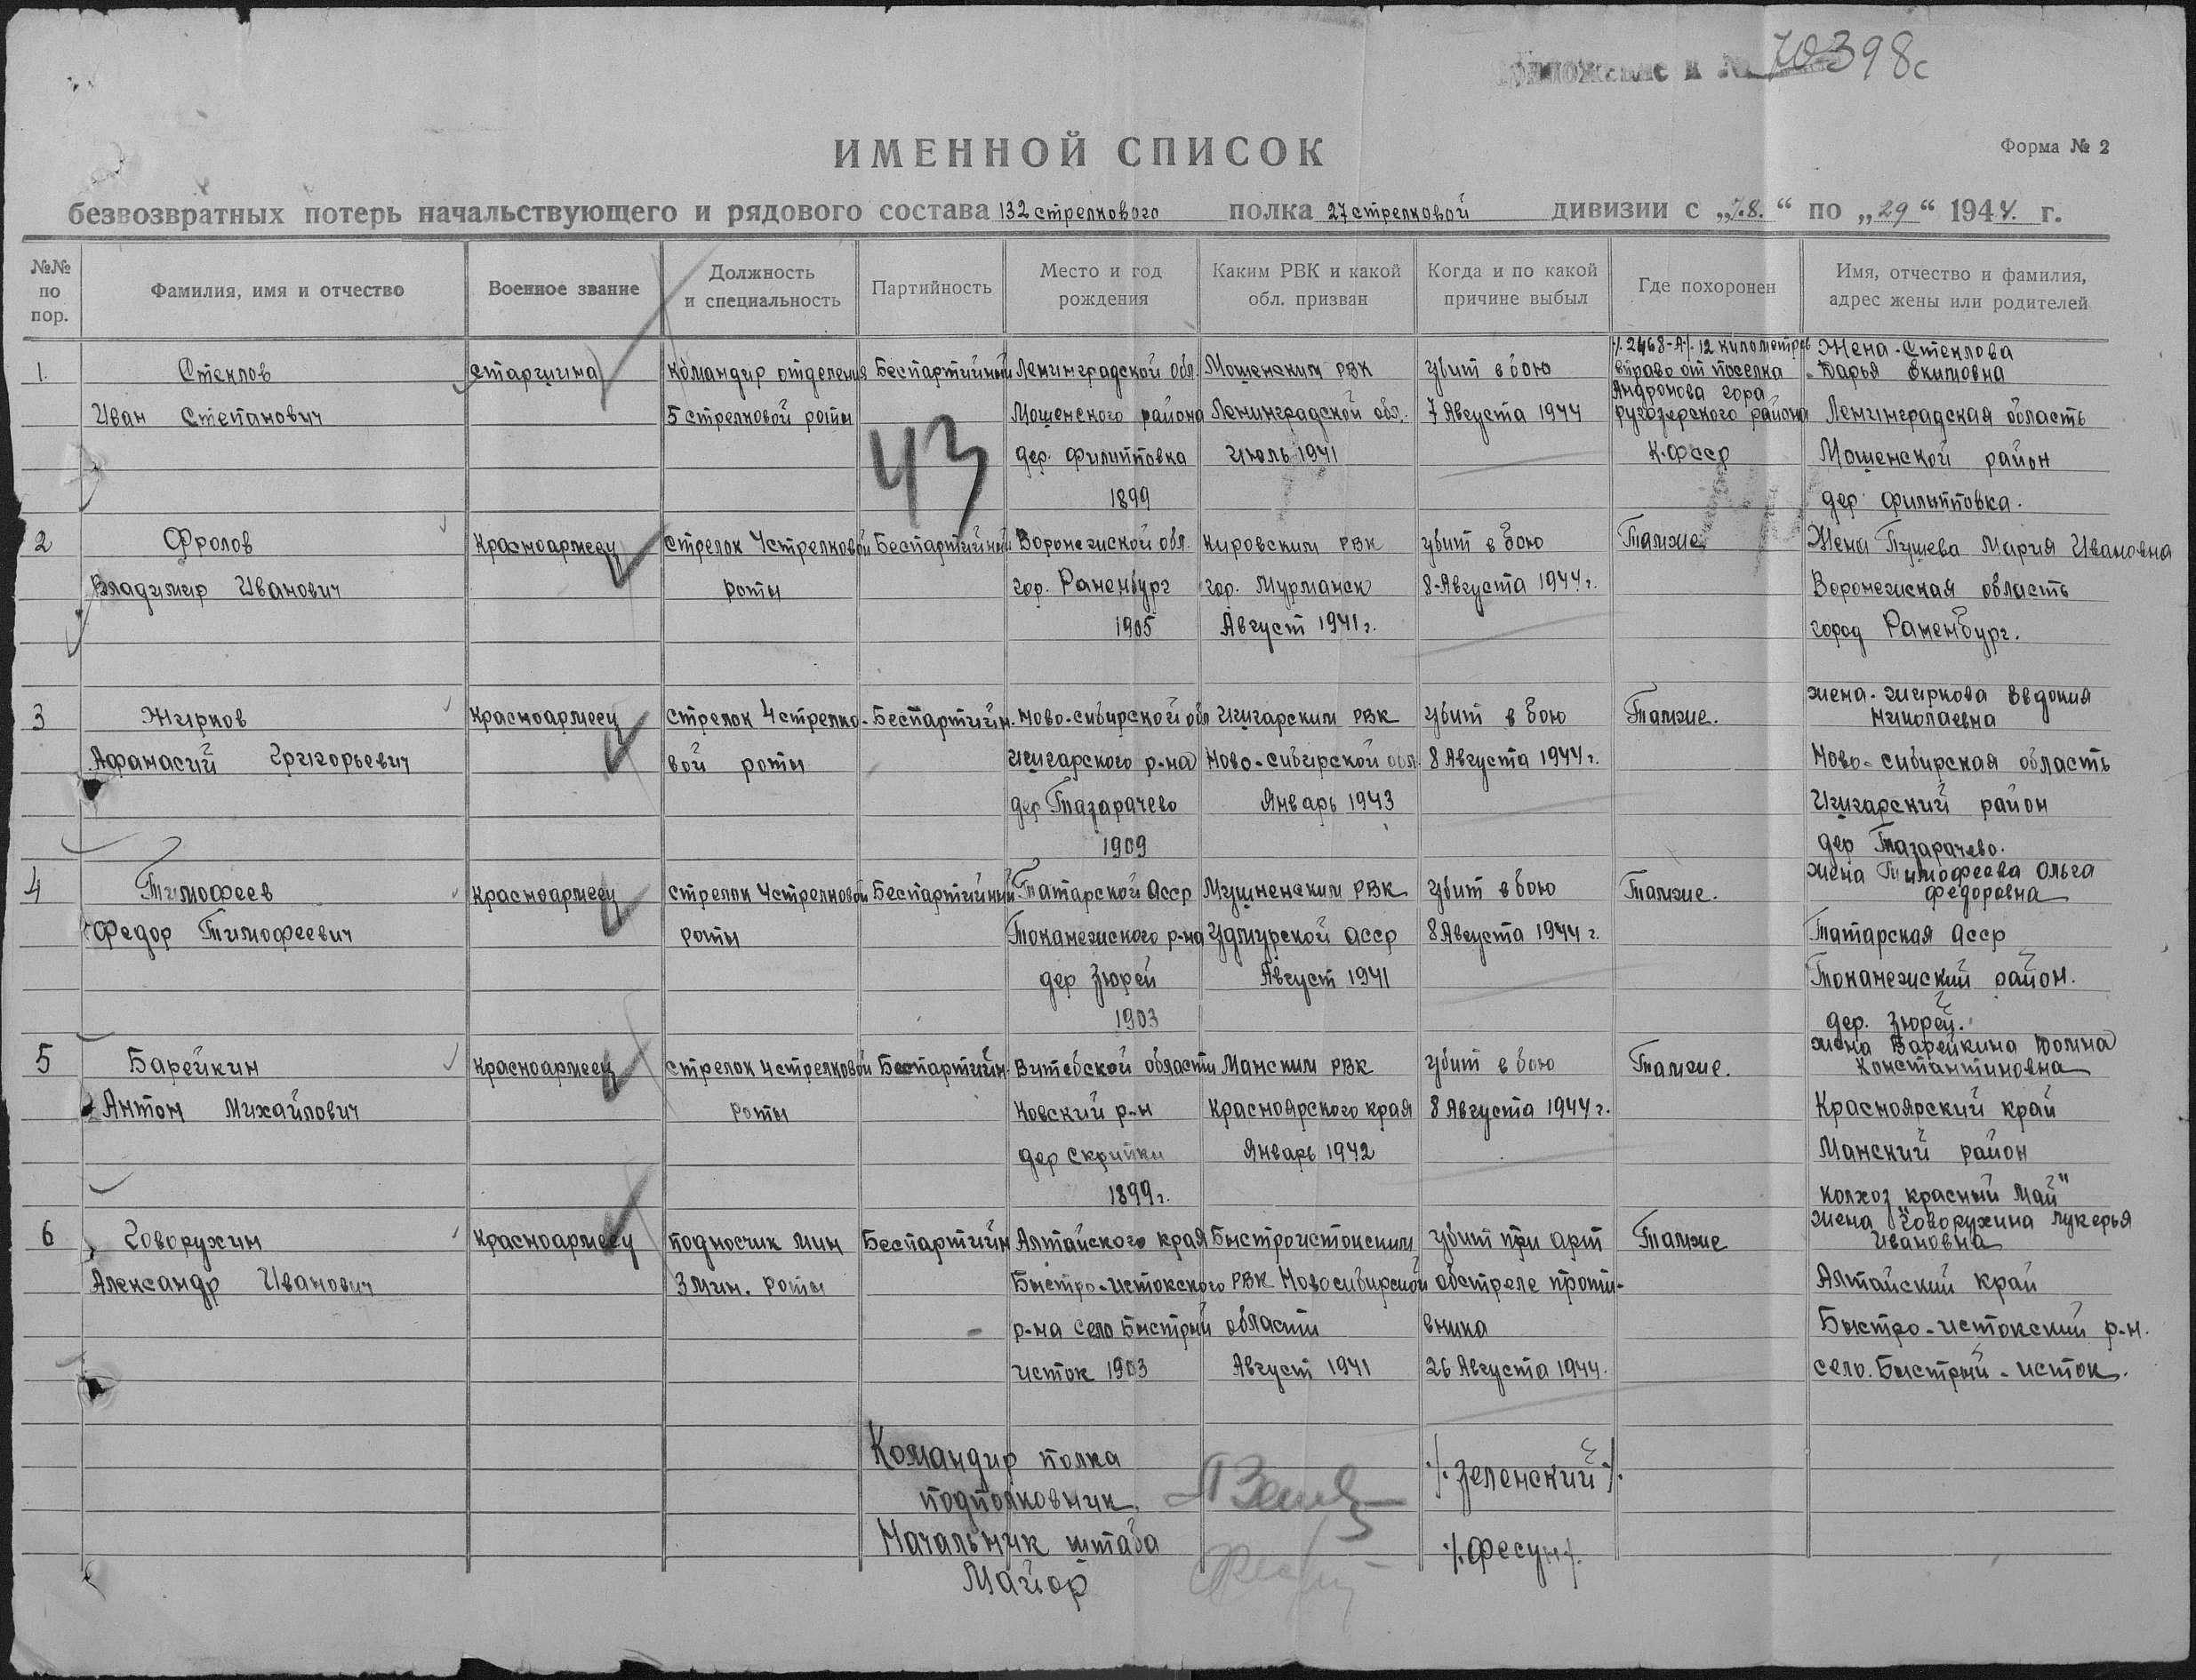 Приложение к № 70398с
ИМЕННОЙ СПИСОК
Форма № 2
безвозвратных потерь начальствующего и рядового состава 132 стрелкового полка 27 стрелковой дивизии с „7.8.“ по „29“ 1944 г.
№№ по пор.
Фамилия, имя и отчество
Военное звание
Должность и специальность
Партийность
Место и год рождения
Каким РВК и какой обл. призван
Когда и по какой причине выбыл
Где похоронен
Имя, отчество и фамилия, адрес жены или родителей
43
1.
Стеклов
Иван Степанович
старшина
Командир отделения
5 стрелковой роты
Беспартийный
Ленинградской обл.
Мошенского района
дер. Филипповка
1899
Мошенским РВК
Ленинградской обл.
Июль 1941
Убит в бою
7 Августа 1944
/. 2468-А/. 12 километров
вправо от поселка
Андронова гора
ругозерского района
К-Фсср
Жена - Стеклова
Дарья Екимовна
Ленинградская область
Мошенской район
дер. Филипповка.
2
Фролов
Владимир Иванович
Красноармеец
стрелок 4 стрелковой
роты
Беспартийный
Воронежской обл.
гор. Раненбург
1905
Кировским РВК
гор. Мурманск
Август 1941 г.
Убит в бою
8-Августа 1944 г.
Также
Жена Мария Ивановна
Воронежская область
город Раненбург.
3
Жирков
Афанасий Григорьевич
Красноармеец
стрелок 4 стрелко-
вой роты
Беспартийн.
Ново-сибирской обл
Ижгарского р-на
дер Тазарачево
1909
Ижгарским РВК
Ново-сибирской обл.
Январь 1943
Убит в бою
8 Августа 1944 г.
Также.
жена - жиркова Евдокия
Николаевна
Ново-сибирская область
Ижгарский район
дер Тазарачево.
4
Тимофеев
Федор Тимофеевич
Красноармеец
стрелок 4 стрелковой
роты
Беспартийный
Татарской Асср
Токанежского р-на
дер Зюрей
1903
РВК
Удмурской асср
Август 1941
Убит в бою
8 Августа 1944 г.
Также.
жена Тимофеева Ольга
федоровна
Татарская Асср
Токанежский район.
дер. Зюрей.
5
Барейкин
Антон Михайлович
Красноармеец
стрелок 4 стрелковой
роты
Беспартийн.
Витебской области
Ковский р-н
дер Скрийки
1899 г.
Манским РВК
Красноярского края
Январь 1942
Убит в бою
8 Августа 1944 г.
Также.
жена Барейкина Домна
Константиновна
Красноярский край
Манский район
колхоз „красный Май"
6
Говорухин
Александр Иванович
Красноармеец
подносчик мин
3 мин. роты
Беспартийн
Алтайского края
Быстро-истокского
р-на село Быстрый
исток 1903
Быстроистокским
РВК Новосибирской
области
Август 1941
Убит при арт
обстреле проти-
вника
26 Августа 1944.
Также
жена Говорухина Лукерья
Ивановна
Алтайский край
Быстро-истокский р-н.
село. Быстрый-исток.
Командир полка
подполковник. ./. Зеленский /.
Начальник штаба
Майор ./. Фесун /.